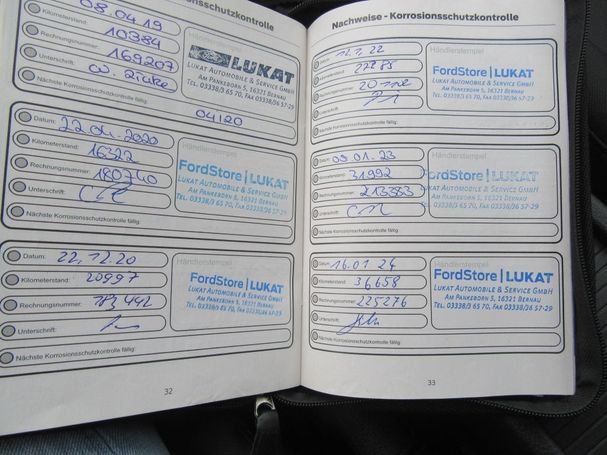 onsschutzkontrolle
08.04.19
Kilometerstand:
10384
Rechnungsnummer:
169207
Unterschrift:
Nächste Korrosionsschutzkontrolle fällig:
04/20
Händlerstempel
LUKAT
LUKAT AUTOMOBILE & SERVICE GMBH
AM PANKEBORN 5, 16321 BERNAU
TEL. 03338/3 65 70, FAX 03338/36 57-29
Datum:
22.04.2020
Kilometerstand:
16322
Rechnungsnummer:
180740
Unterschrift:
Nächste Korrosionsschutzkontrolle fällig:
Händlerstempel
FordStore | LUKAT
LUKAT AUTOMOBILE & SERVICE GMBH
AM PANKEBORN 5, 16321 BERNAU
TEL. 03338/3 65 70, FAX 03338/36 57-29
Datum:
22.12.20
Kilometerstand:
20997
Rechnungsnummer:
Unterschrift:
Nächste Korrosionsschutzkontrolle fällig:
Händlerstempel
FordStore | LUKAT
LUKAT AUTOMOBILE & SERVICE GMBH
AM PANKEBORN 5, 16321 BERNAU
TEL. 03338/3 65 70, FAX 03338/36 57-29
32
Nachweise - Korrosionsschutzkontrolle
Datum:
Kilometerstand:
Rechnungsnummer:
Unterschrift:
Nächste Korrosionsschutzkontrolle fällig:
Händlerstempel
FordStore | LUKAT
LUKAT AUTOMOBILE & SERVICE GMBH
AM PANKEBORN 5, 16321 BERNAU
TEL. 03338/3 65 70, FAX 03338/36 57-29
Datum:
09.01.23
Kilometerstand:
31992
Rechnungsnummer:
213383
Unterschrift:
Nächste Korrosionsschutzkontrolle fällig:
Händlerstempel
FordStore | LUKAT
LUKAT AUTOMOBILE & SERVICE GMBH
AM PANKEBORN 5, 16321 BERNAU
TEL. 03338/3 65 70, FAX 03338/36 57-29
Datum:
16.01.24
Kilometerstand:
36658
Rechnungsnummer:
225276
Unterschrift:
Nächste Korrosionsschutzkontrolle fällig:
Händlerstempel
FordStore | LUKAT
LUKAT AUTOMOBILE & SERVICE GMBH
AM PANKEBORN 5, 16321 BERNAU
TEL. 03338/3 65 70, FAX 03338/36 57-29
33